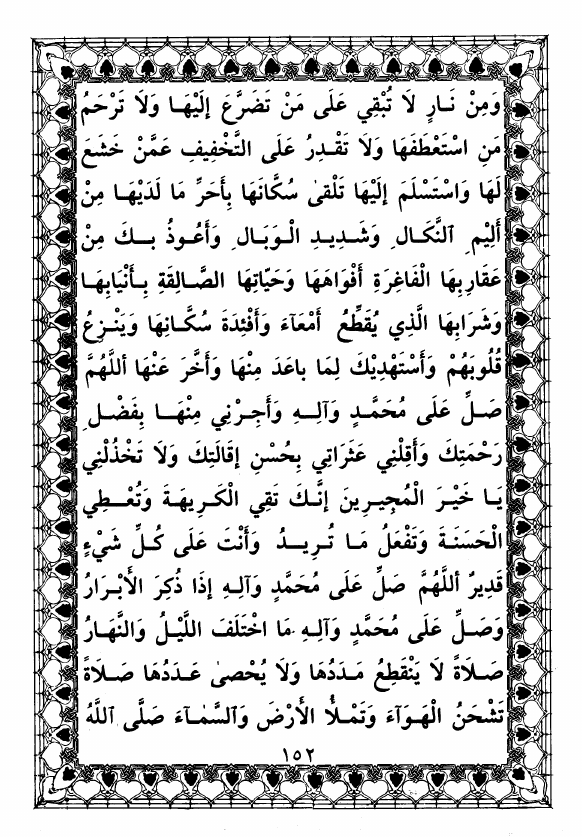 وَمِنْ نَـارٍ لَا تُبْقِي عَلَى مَنْ تَضَرَّعَ إِلَيْهَـا وَلَا تَرْحَمُ
مَنِ اسْتَعْطَفَهَا وَلَا تَقْـدِرُ عَلَى التَّخْفِيفِ عَمَّنْ خَشَعَ
لَهَا وَاسْتَسْلَمَ إِلَيْهَا تَلْقىٰ سُكَّانَهَا بِأَحَرِّ مَا لَدَيْهَـا مِنْ
أَلِيْمِ ٱلنَّكَالِ وَشَدِيـدِ الْـوَبَالِ وَأَعُوذُ بِـكَ مِنْ
عَقَارِبِهَا الْفَاغِرَةِ أَفْوَاهَهَا وَحَيّاتِهَا الصَّـالِقَةِ بِـأَنْيَابِهَـا
وَشَرَابِهَا الَّذِي يُقَطِّعُ أَمْعَآءَ وَأَفْئِدَةَ سُكَّـانِهَا وَيَنْـزِعُ
قُلُوبَهُمْ وَأَسْتَهْدِيْكَ لِمَا باعَدَ مِنْهَا وَأَخَّرَ عَنْهَا أَللّٰهُمَّ
صَـلِّ عَلَى مُحَمَّـدٍ وَآلِـهِ وَأَجِـرْنِي مِنْهَـا بِفَضْـلِ
رَحْمَتِكَ وَأَقِلْنِي عَثَرَاتِي بِحُسْنِ إِقَالَتِكَ وَلَا تَخْذُلْنِي
يَـا خَيْـرَ الْمُجِيـرِينَ إِنَّـكَ تَقِي الْكَـرِيهَـةَ وَتُعْـطِي
الْحَسَنَـةَ وَتَفْعَلُ مَـا تُـرِيـدُ وَأَنْتَ عَلَى كُـلِّ شَيْءٍ
قَدِيرٌ أَللّٰهُمَّ صَلِّ عَلَى مُحَمَّدٍ وَآلِهِ إِذَا ذُكِرَ الْأَبْـرَارُ
وَصَـلِّ عَلَى مُحَمَّدٍ وَآلِـهِ مَا اخْتَلَفَ اللَّيْلُ وَالنَّهَارُ
صَـلَاةً لَا يَنْقَطِعُ مَـدَدُهَا وَلَا يُحْصىٰ عَـدَدُهَا صَـلَاةً
تَشْحَنُ الْهَـوَآءَ وَتَمْـلَأُ الْأَرْضَ وَٱلسَّمَآءَ صَلَّى ٱللّٰهُ
١٥٢